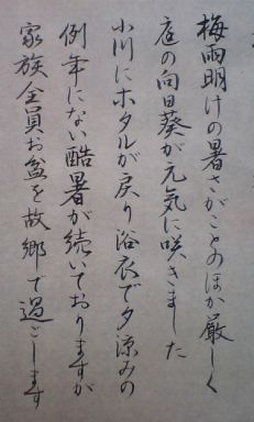 梅雨明けの暑さがことのほか厳しく
庭の向日葵が元気に咲きました
小川にホタルが戻り浴衣で夕涼みの
例年にない酷暑が続いておりますが
家族全員お盆を故郷で過ごします